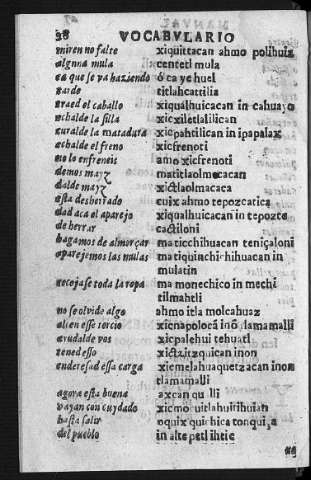 28 VOCABVLARIO
miren no falte xiquittacan ahmo polihuiz
alguna mula centetl mula
ea que se va haziendo ó ca ye huel
tarde titlahcatilia
traed el caballo xiqualhuicacan in cahuayo
echalde la silla xicxiletlalilican
curalde la matadura xicpahtilican in ipapalax
echalde el freno xicfrenoti
no lo enfreneis amo xicfrenoti
demos mayz matitlaolmacacan
dalde mayz xictlaolmacaca
esta desherrado cuix ahmo tepozcatica
dad aca el aparejo xiqualhuicacan in tepozte
de herrar cactiloni
hagamos de almorçar maticchihuacan teniçaloni
aparejemos las mulas matiquinchichihuacan in
mulatin
recojase toda la ropa ma monechico in mechi
tilmahtli
no se olvide algo ahmo itla molcahuaz
alien esse tercio xicnapolocã inõ tlamamalli
ayudalde vos xicpalehui tehuatl
tened esso xictzitzquican inon
enderesad essa carga xicmelahuaquetzacan inon
tlamamalli
agora esta buena axcan qualli
vayan con cuydado xicmocuitlahuitihuian
hasta salir oquixquichica tonquiça
del pueblo in altepetl ihtic